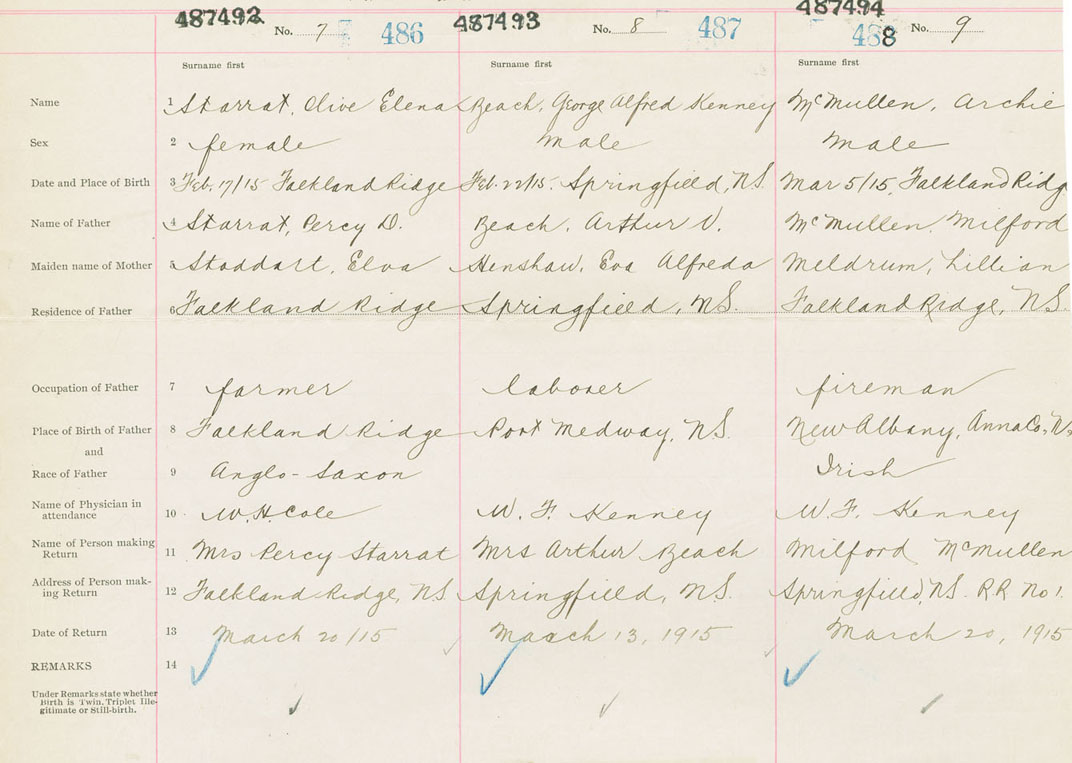 487492 487493 487494
No. 7 486 No. 8 487 488 No. 9
Surname first Surname first Surname first
Name 1 Starrat, Olive Elena Beach, George Alfred Kenney McMullen, Archie
Sex 2 female male male
Date and Place of Birth 3 Feb. 17/15 Falkland Ridge Feb. 22/15. Springfield, N.S. Mar 5/15, Falkland Ridg
Name of Father 4 Starrat, Percy D. Beach, Arthur V. McMullen, Milford
Maiden name of Mother 5 Stoddart, Elva Henshaw, Eva Alfreda Meldrum, Lillian
Residence of Father 6 Falkland Ridge Springfield, N.S. Falkland Ridge, N.S.
Occupation of Father 7 farmer laborer fireman
Place of Birth of Father 8 Falkland Ridge Port Medway, N.S. New Albany, Anna Co., N.S
and
Race of Father 9 Anglo-Saxon Irish
Name of Physician in
attendance 10 W. H. Cole W. F. Kenney W. F. Kenney
Name of Person making
Return 11 Mrs Percy Starrat Mrs Arthur Beach Milford McMullen
Address of Person mak-
ing Return 12 Falkland Ridge, N.S Springfield, N.S. Springfield, N.S. R.R. No 1.
Date of Return 13 March 20/15 March 13, 1915 March 20, 1915
REMARKS 14
Under Remarks state whether
Birth is Twin, Triplet Ille-
gitimate or Still-birth.